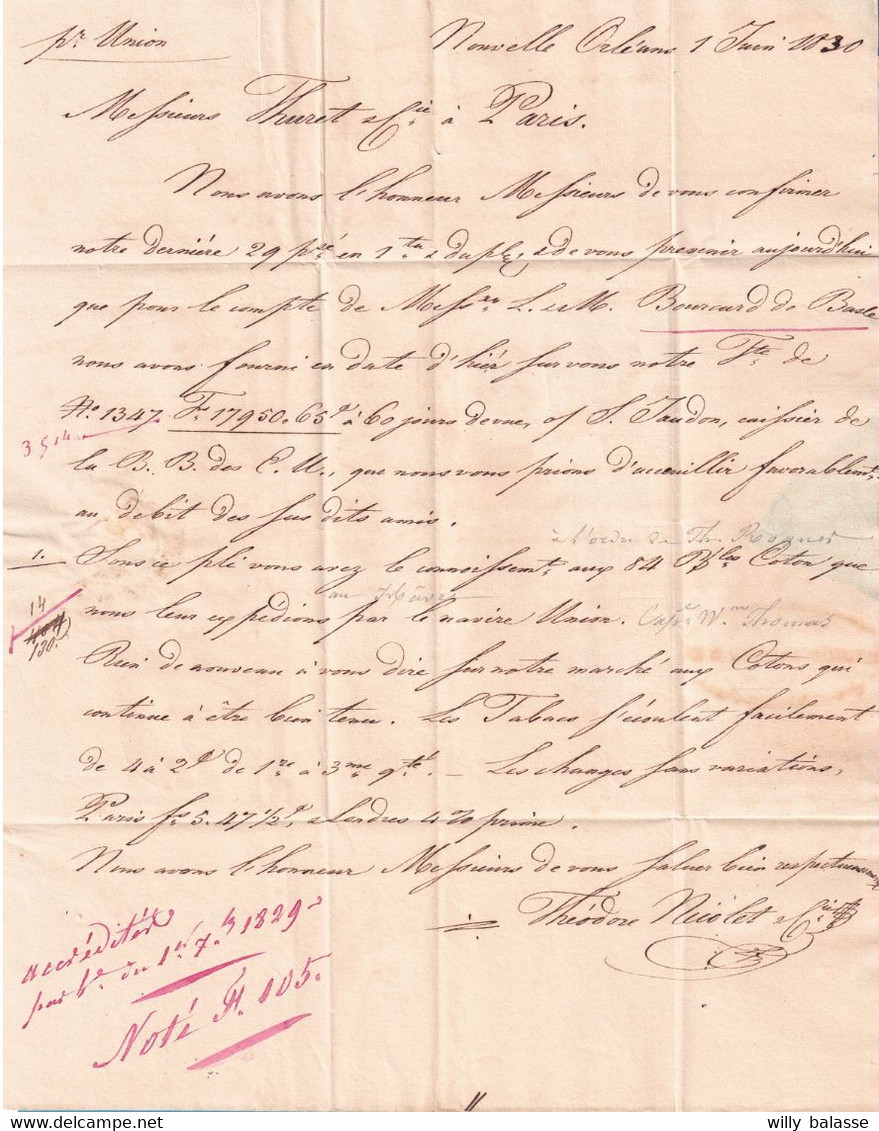 pr. Union
Nouvelle Orléans 1 Juin 1830
Messieurs Thuret & Cie. à Paris.
Nous avons l'honneur Messieurs de vous confirmer
notre dernière 29 pé. en 1ta & dupla, & de vous prevenir aujourd'hui
que pour le compte de Messrs L. & M. Bourcard de Basle
nous avons fourni en date d'hiér sur vous notre Tte. de
No. 1347. Fs. 17950.65 à 60 jours de vue, o/ S. Jaudon, caissier de
3514
la B. B. des E. U., que nous vous prions d'accueillir favorablemt.
au debit des sus dits amis.
à l'ordre de Th.
1. Sous ce pli vous avez le connoissemt. aux 84 Bles Coton que
au Hâvre
nous leur expédions par le navire Union. Cape. Wm. Thomas
14
130.
Rien de nouveau à vous dire sur notre marché aux Cotons qui
continue à être bien tenu. Les Tabacs s'écoulent facilement
de 4 à 2 de 1re à 3me qté. — Les changes sans variations,
Paris fs. 5.47½, & Londres 4% prime.
Nous avons l'honneur Messieurs de vous saluer bien respectueusement
Théodore Nicolet & Cie.
accrédités
par L. du 1er 7.b 1829
Noté F. 105.
willy balasse